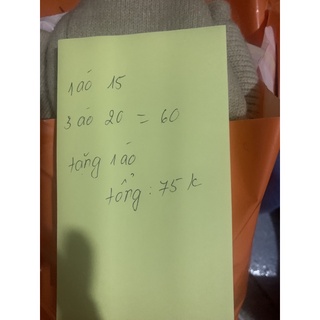 1 áo 15
3 áo 20 = 60
tặng 1 áo
tổng : 75 k